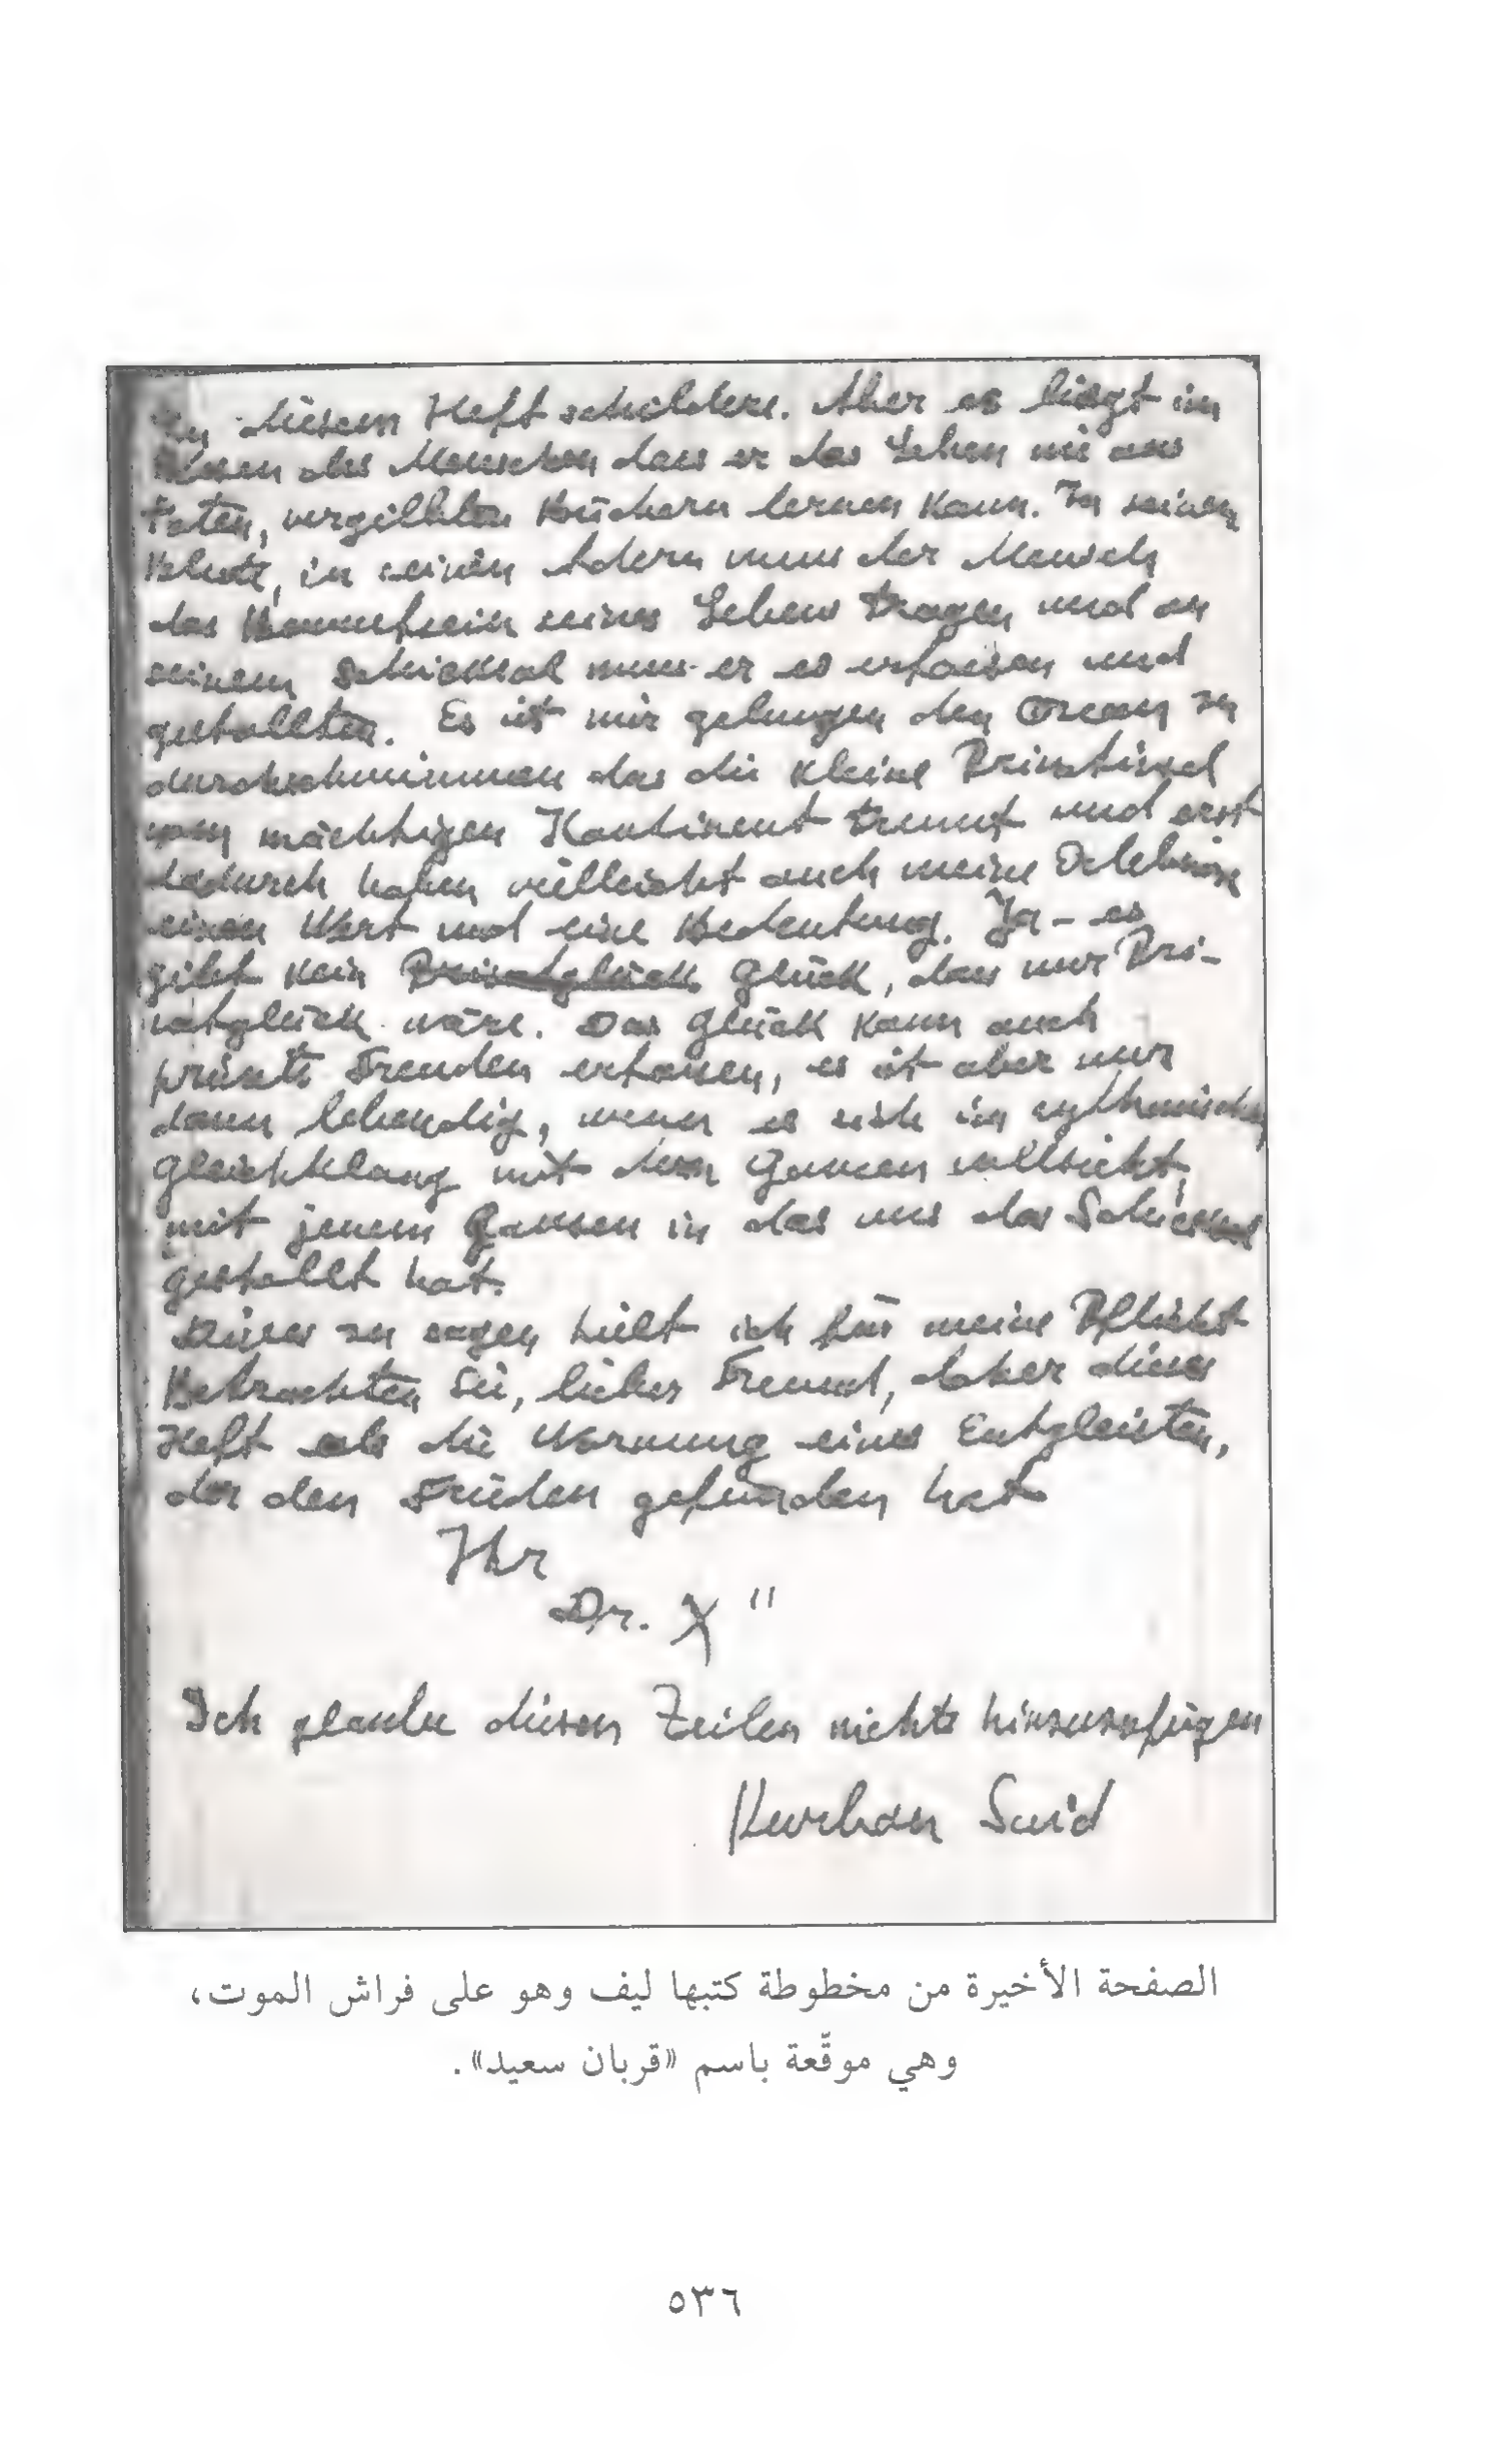 In diesem Heft schildere. Aber es liegt im
Wesen des Menschen dass er das Leben nie aus
toten, vergilbten Büchern lernen kann. In seinem
Blute, in seinen Adern muss der Mensch
das Bewustsein seines Lebens tragen und an
seinem Schicksal muss er es erfassen und
gestallten. Es ist mir gelungen den Ocean zu
durchschwimmen das die kleine Privatinsel
vom mächtigen Kontinent trennt und erst
dadurch haben vielleicht auch meine Erlebnisse
einen Wert und eine Bedeutung. Ja - es
gibt kein Privatglück Glück, das nur Pri-
vatglück wäre. Das Glück kann auch
private Freuden erfassen, es ist aber nur
dann lebendig, wenn es sich im rythmischen
Gleichklang mit dem Ganzen vollzieht,
mit jenem Ganzen in das uns das Schicksal
gestellt hat.
Dieses zu sagen hielt ich für meine Pflicht
Betrachten Sie, lieber Freund, daher dieses
Heft als die Warnung eines Entgleisten,
der den Frieden gefunden hat
Ihr
Dr. X "
Ich glaube diesen Zeilen nichts hinzuzufügen
Kurban Said
الصفحة الأخيرة من مخطوطة كتبها ليف وهو على فراش الموت،
وهي موقّعة باسم «قربان سعيد».
٥٣٦